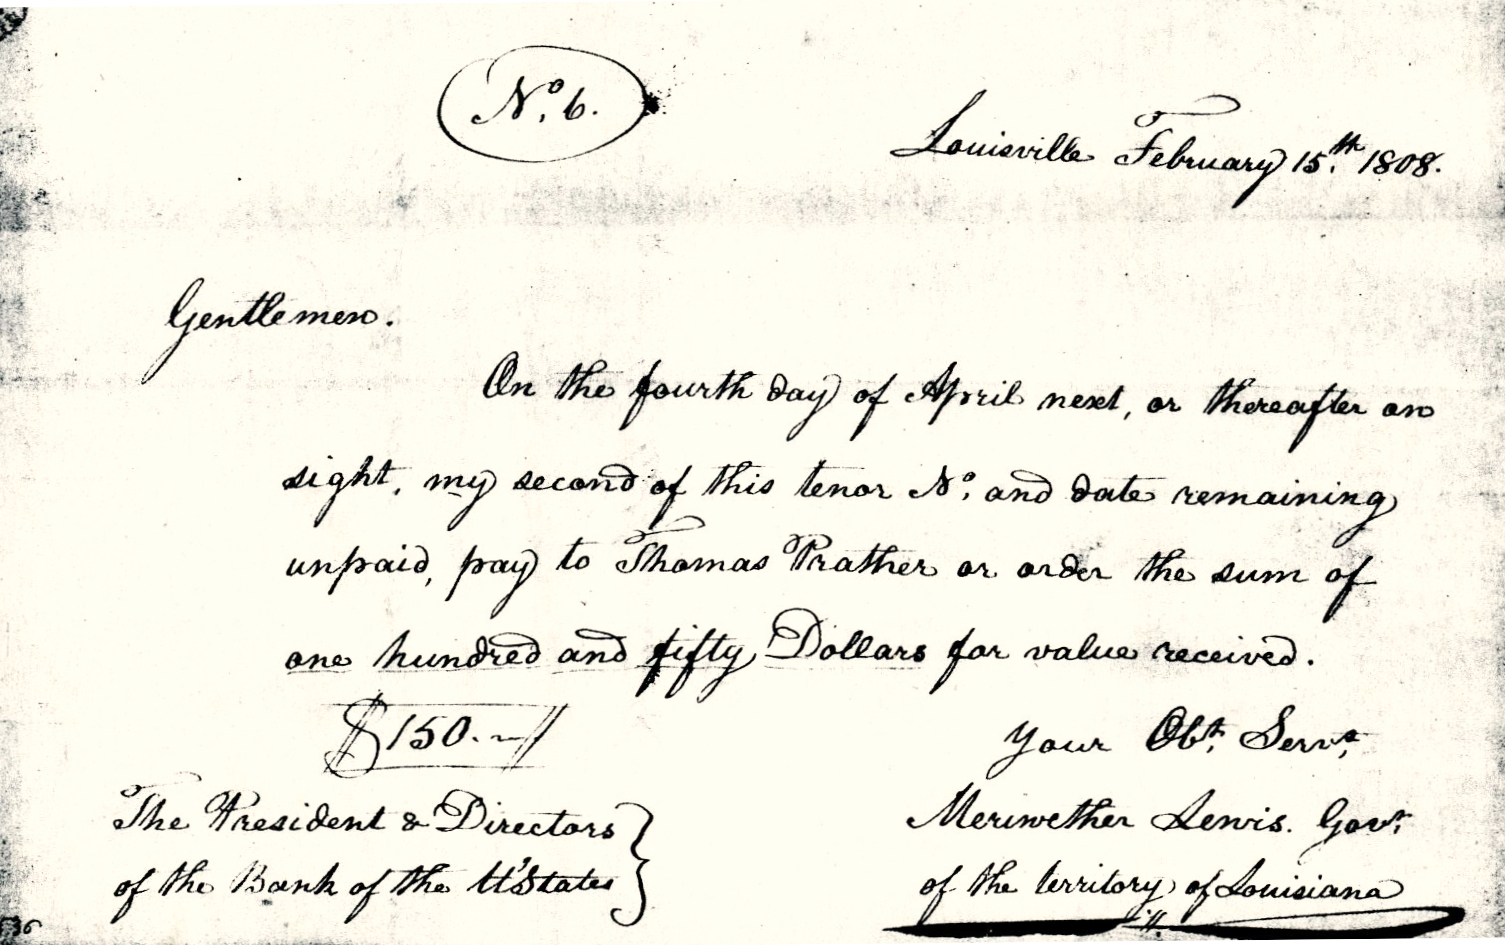 No. 6.
Louisville February 15.th 1808.
Gentlemen.
On the fourth day of April next, or thereafter on
sight, my second of this tenor No. and date remaining
unpaid, pay to Thomas Prather or order the sum of
one hundred and fifty Dollars for value received.
$150.~//
Your Obt. Servt.
The President & Directors
of the Bank of the U'States
Meriwether Lewis. Govr.
of the territory of Louisiana